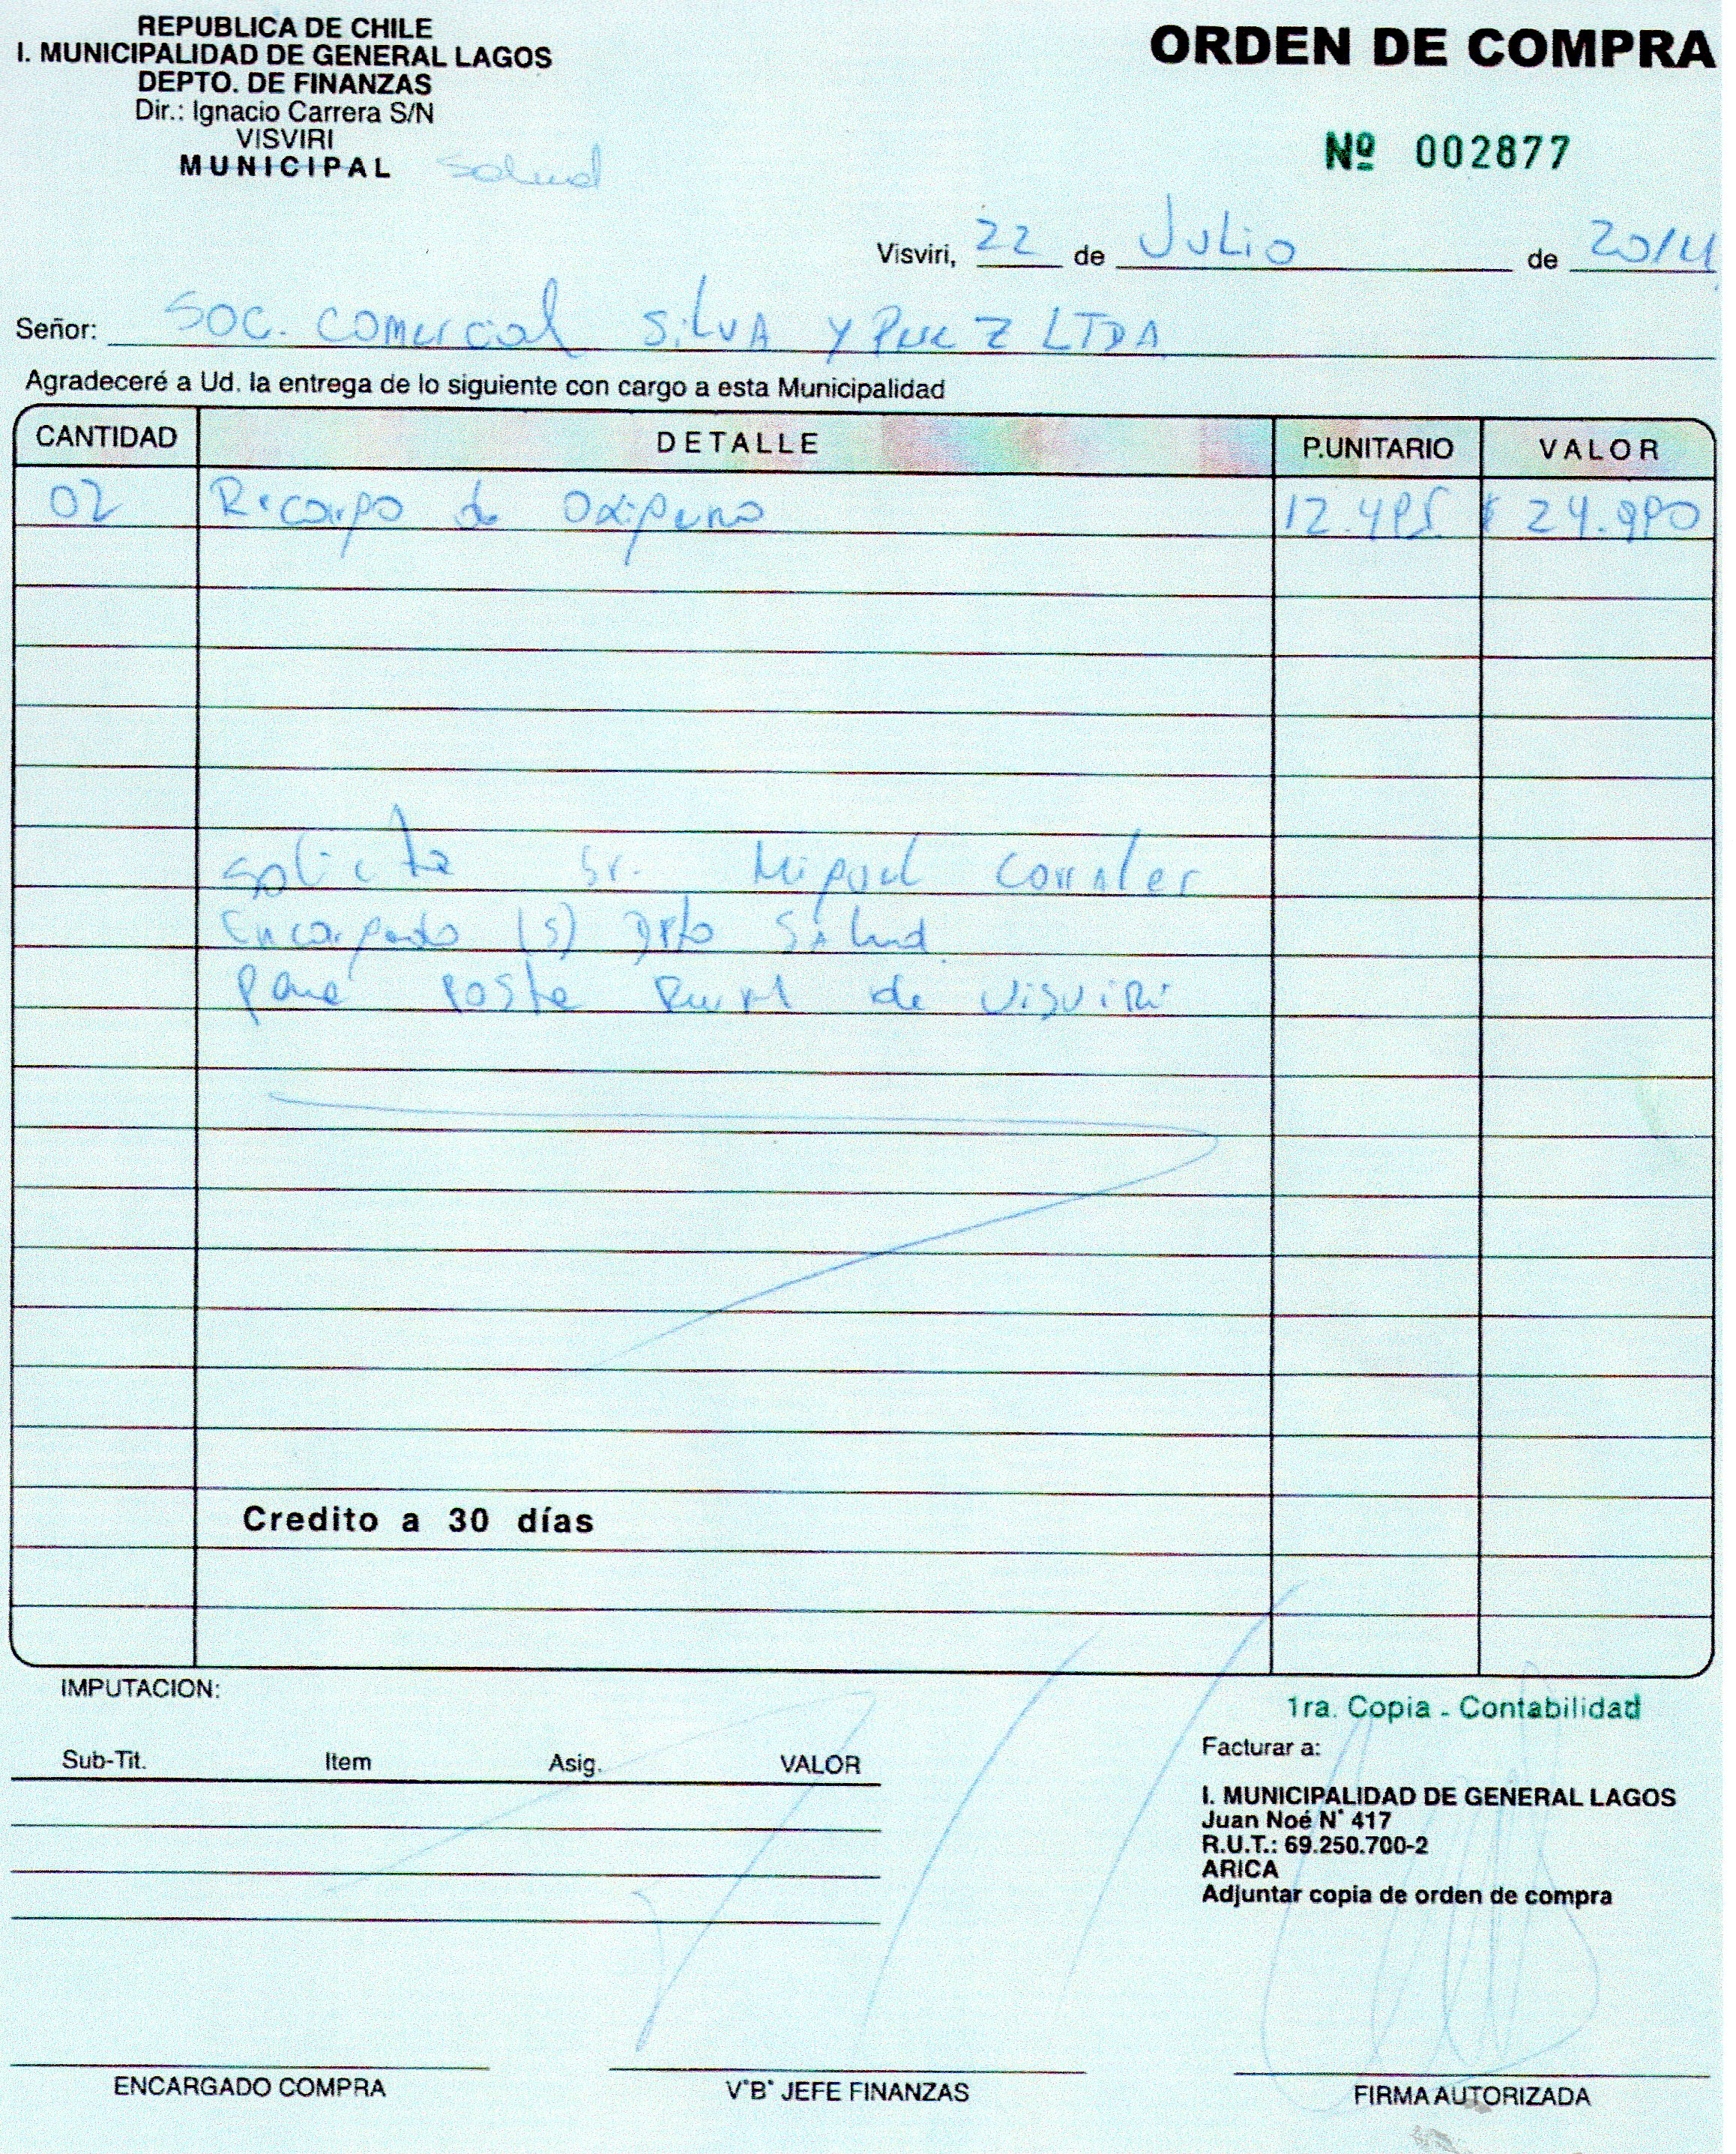 REPUBLICA DE CHILE
I. MUNICIPALIDAD DE GENERAL LAGOS
DEPTO. DE FINANZAS
Dir.: Ignacio Carrera S/N
VISVIRI
MUNICIPAL Salud
ORDEN DE COMPRA
Nº 002877
Visviri, 22 de Julio de 2014
Señor: Soc. Comercial Silva y Perez LTDA
Agradeceré a Ud. la entrega de lo siguiente con cargo a esta Municipalidad
CANTIDAD DETALLE P.UNITARIO VALOR
02 Recarga de Oxigeno 12.495 $ 24.990
Solicita Sr. Miguel Corrales
Encargado (S) Dpto Salud
para Posta Rural de Visviri
Credito a 30 días
IMPUTACION:
1ra. Copia - Contabilidad
Sub-Tit. Item Asig. VALOR
Facturar a:
I. MUNICIPALIDAD DE GENERAL LAGOS
Juan Noé N° 417
R.U.T.: 69.250.700-2
ARICA
Adjuntar copia de orden de compra
ENCARGADO COMPRA V°B° JEFE FINANZAS FIRMA AUTORIZADA